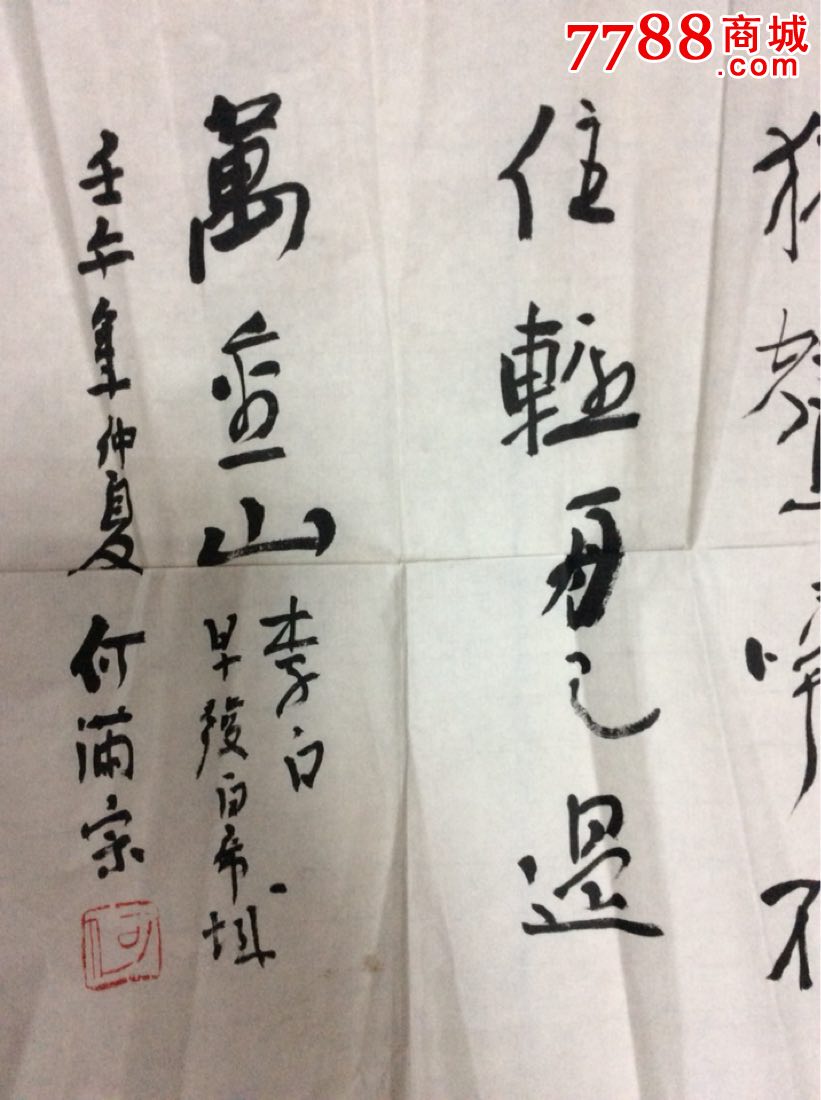 7788商城
.com
猿聲啼不
住輕舟已過
萬重山
李白
早發白帝城
壬午年仲夏何满宗
何